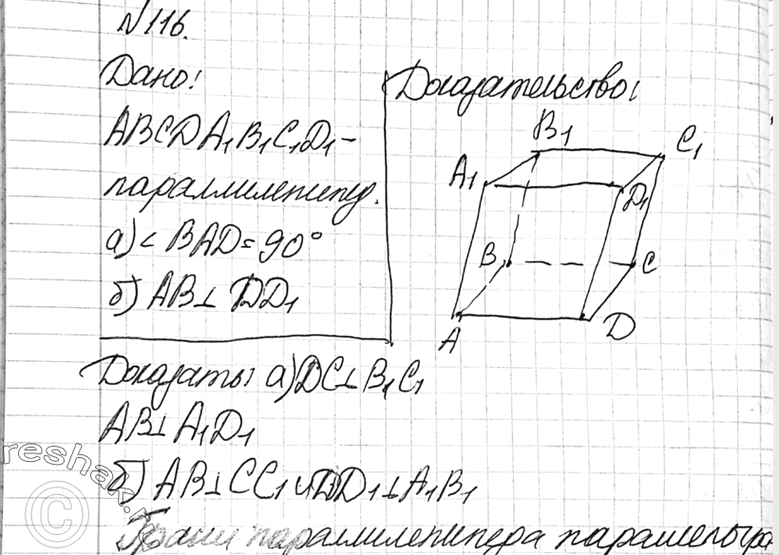 №116.
Дано:
Доказательство:
ABCDA₁B₁C₁D₁-
параллилепипед.
а) < BAD = 90°
б) AB ⊥ DD₁
B₁
C₁
A₁
D₁
B
C
A
D
Доказать: а) DC ⊥ B₁C₁
AB ⊥ A₁D₁
б) AB ⊥ CC₁ и DD₁ ⊥ A₁B₁
Грани параллилепипера параллелогра
reshak.
©